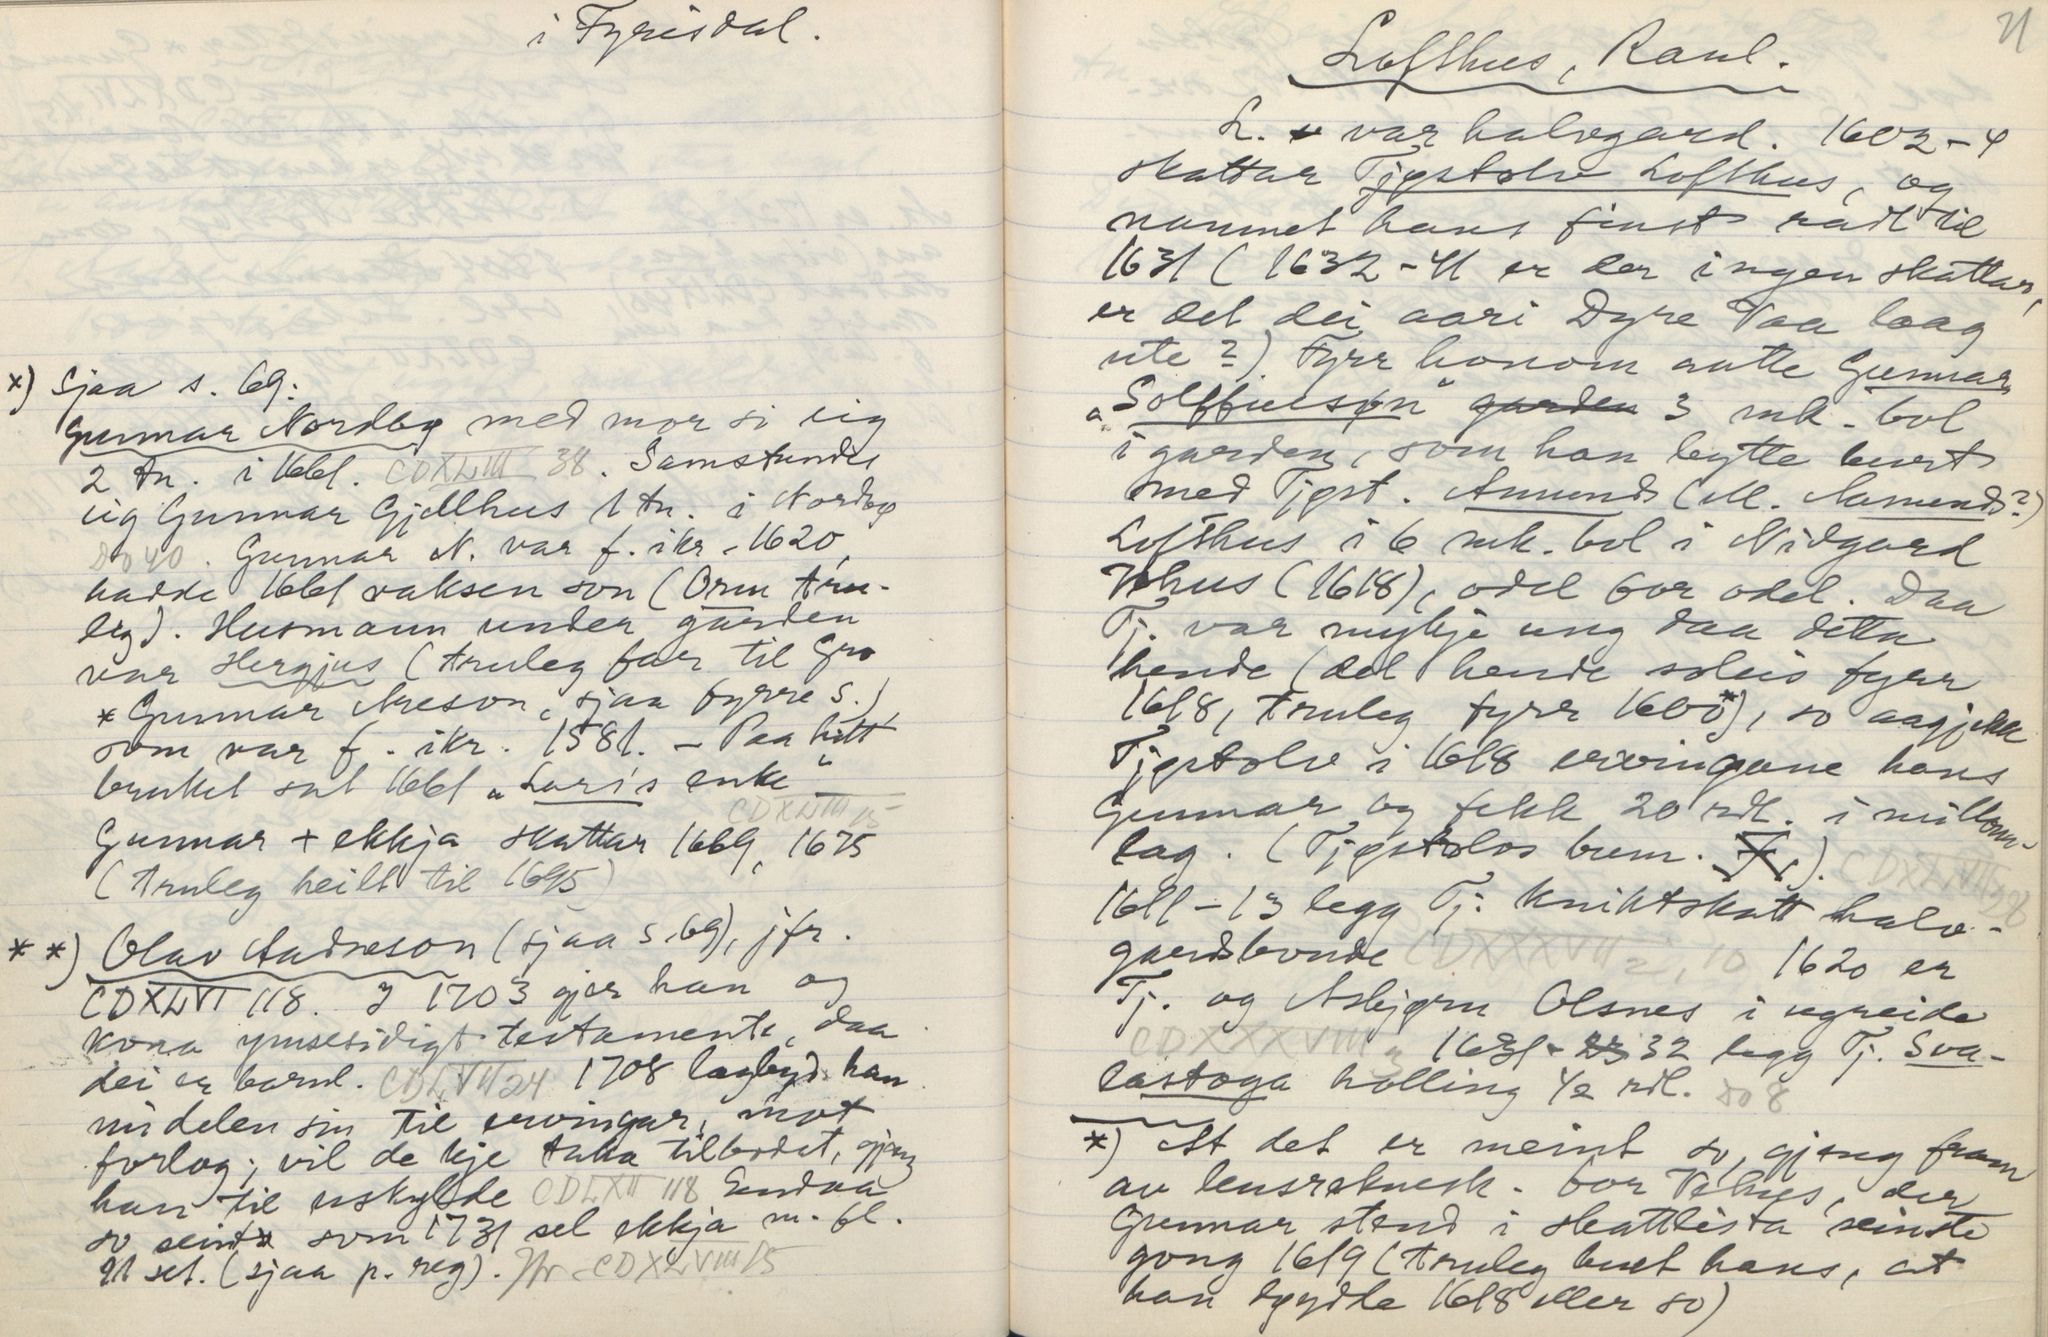 i Fyrisdal.
*) Sjaa s. 69:
Gunnar Nordbø med mor si eig
2 tn. i 1661. CDXLIII 38. Samstundes
eig Gunnar Gjellhus 1 tn. i Nordbø
do 40. Gunnar N. var f. ikr. 1620,
hadde 1661 vaksen son (Orm tru-
leg). Husmann under garden
var Hergjus (truleg far til Gro
* Gunnar Areson, sjaa fyrre s.),
som var f. ikr. 1581. – Paa hitt
bruket sat 1661 "Laris enke"
CDXLIII 15
Gunnar + ekkja skattar 1669, 1675
(truleg heilt til 1695)
**) Olav Aadneson (sjaa s. 69), jfr.
CDXLVI 118. I 1703 gjer han og
kona ymsesidigt testamente, daa
dei er barnl. CDLVII 24 1708 lagbyd han
midelen sin til ervingar, mot
forlog; vil de kje taka tilbodet, gjeng
han til uskylde CDLXII 118 Endaa
so seint som 1731 sel ekkja m. fl.
91 set. (sjaa p. reg). Jfr. CDXLVIII 15
71
Lofthus, Raul.
L. var halvgard. 1602-4
skattar Tjøstolv Lofthus, og
namnet hans finst radt til
1631 (1632-41 er der ingen skattar,
er det dei aari Dyre Vaa laag
ute?) Fyrr honom aatte Gunnar
"Solffuesøn" garden 3 mk. bol
i garden, som han bytte burt
med Tjøst. Amunds (M. Aamunds?)
Lofthus i 6 mk. bol i Nidgard
Vehus (1618), odel for odel. Daa
Tj. var mykje ung daa detta
hende (det hende soleis fyrr
1618, truleg fyrr 1600*), so aagjekk
Tjøstolv i 1618 ervingane hans
Gunnar og fekk 20 rdl. i millom-
lag. (Tjøstolvs bum. ).
CDXLVII 28
1611-13 legg Tj. kniktskatt halv-
gardsbonde CDXXXVII 2, 10 1620 er
Tj. og Asbjørn Olsnes i ugreide
CDXXXVIII 3 1631-32 legg Tj. Sva-
lastoga holling 1/2 rdl. do 8
*) At det er meint so, gjeng fram
av lensreknesk. for Vehus, der
Gunnar stend i skattlista seinste
gong 1619 (truleg buet hans, at
han døydde 1618 eller so)